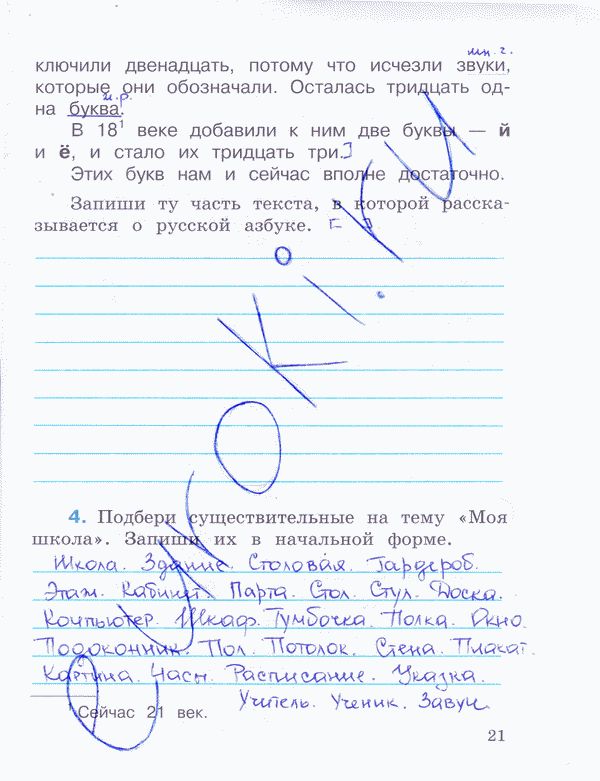 мн. г.
ключили двенадцать, потому что исчезли звуки,
которые они обозначали. Осталась тридцать од-
и.р.
на буква.
В 18¹ веке добавили к ним две буквы — й
и ё, и стало их тридцать три.]
Этих букв нам и сейчас вполне достаточно.
Запиши ту часть текста, в которой расска-
зывается о русской азбуке. [ ]
4. Подбери существительные на тему «Моя
школа». Запиши их в начальной форме.
Школа. Здание. Столовая. Гардероб.
Этаж. Кабинет. Парта. Стол. Стул. Доска.
Компьютер. Шкаф. Тумбочка. Полка. Окно.
Подоконник. Пол. Потолок. Стена. Плакат.
Картина. Часы. Расписание. Указка.
Учитель. Ученик. Завуч.
¹ Сейчас 21 век.
21